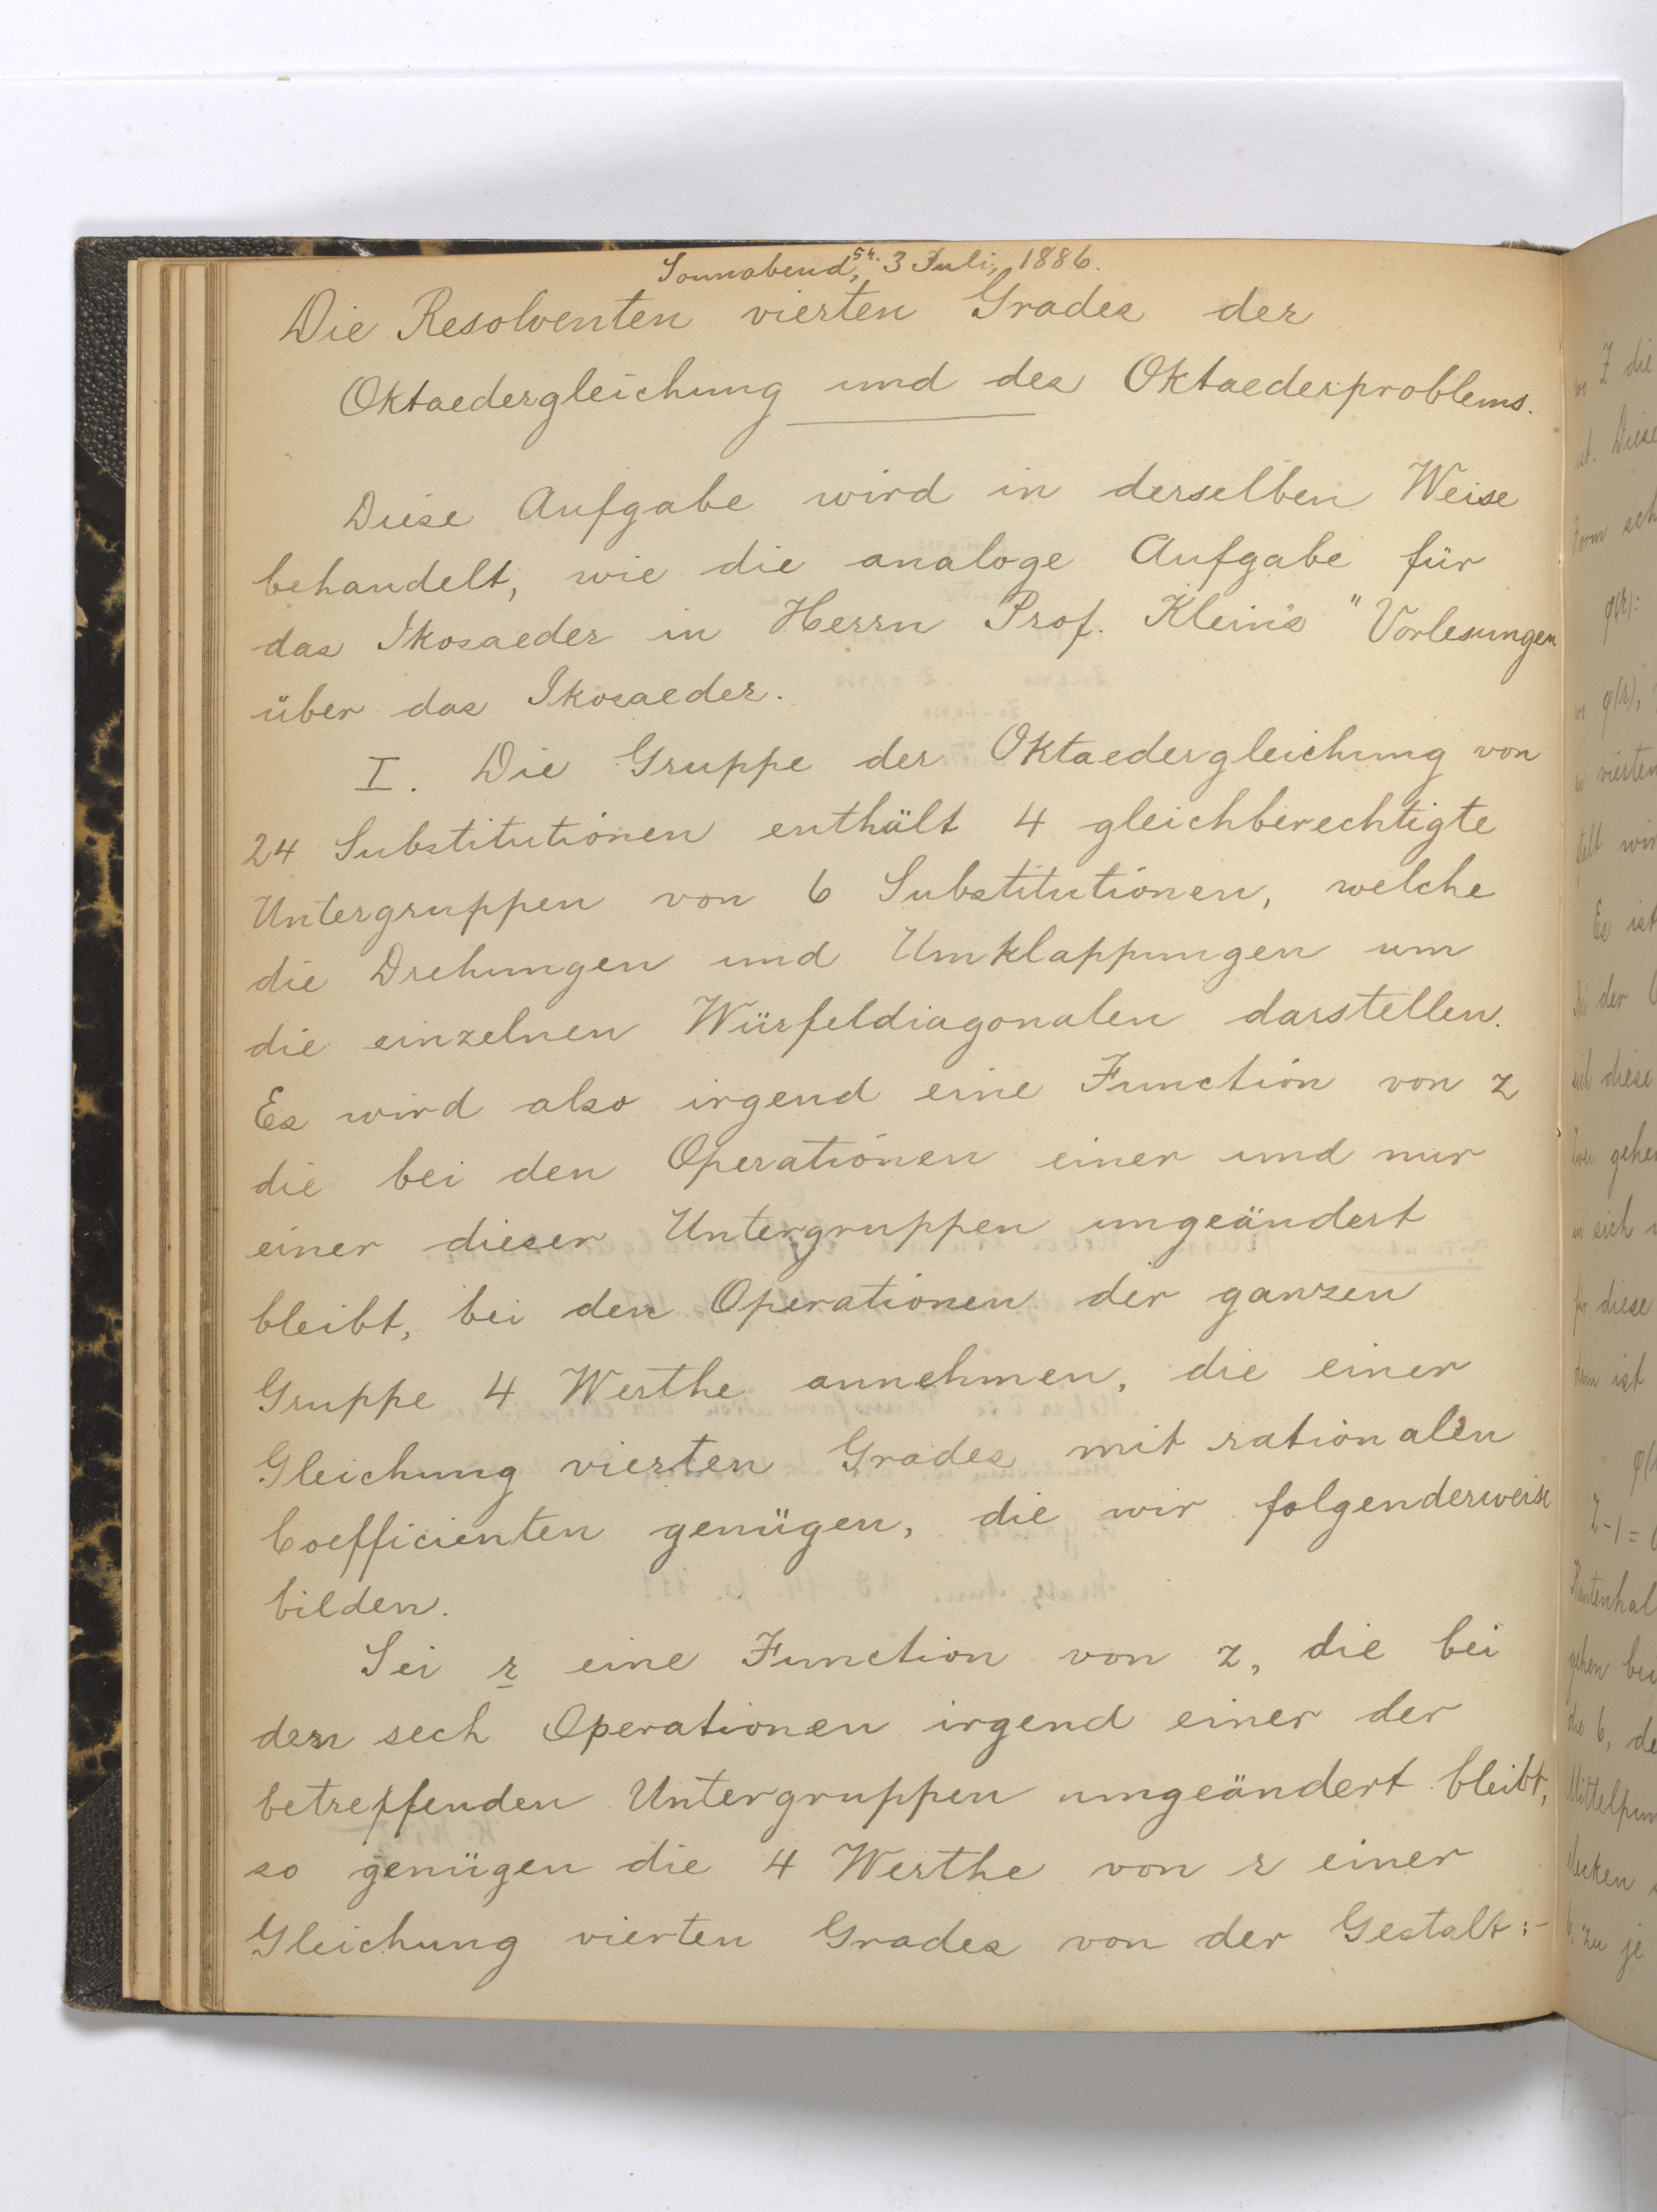 Sonnabend, 3 Juli, 1886.
Die Resolventen vierten Grades der
Oktaedergleichung und des Oktaederproblems.
Diese Aufgabe wird in derselben Weise
behandelt, wie die analoge Aufgabe für
das Ikosaeder in Herrn Prof. Klein's "Vorlesungen
über das Ikosaeder.
I. Die Gruppe der Oktaedergleichung von
24 Substitutionen enthält 4 gleichberechtigte
Untergruppen von 6 Substitutionen, welche
die Drehungen und Umklappungen um
die einzelnen Würfeldiagonalen darstellen.
Es wird also irgend eine Function von z
die bei den Operationen einer und nur
einer dieser Untergruppen ungeändert
bleibt, bei den Operationen der ganzen
Gruppe 4 Werthe annehmen, die einer
Gleichung vierten Grades mit rationalen
Coefficienten genügen, die wir folgenderweise
bilden.
Sei r eine Function von z, die bei
den sech Operationen irgend einer der
betreffenden Untergruppen ungeändert bleibt,
so genügen die 4 Werthe von r einer
Gleichung vierten Grades von der Gestalt:-